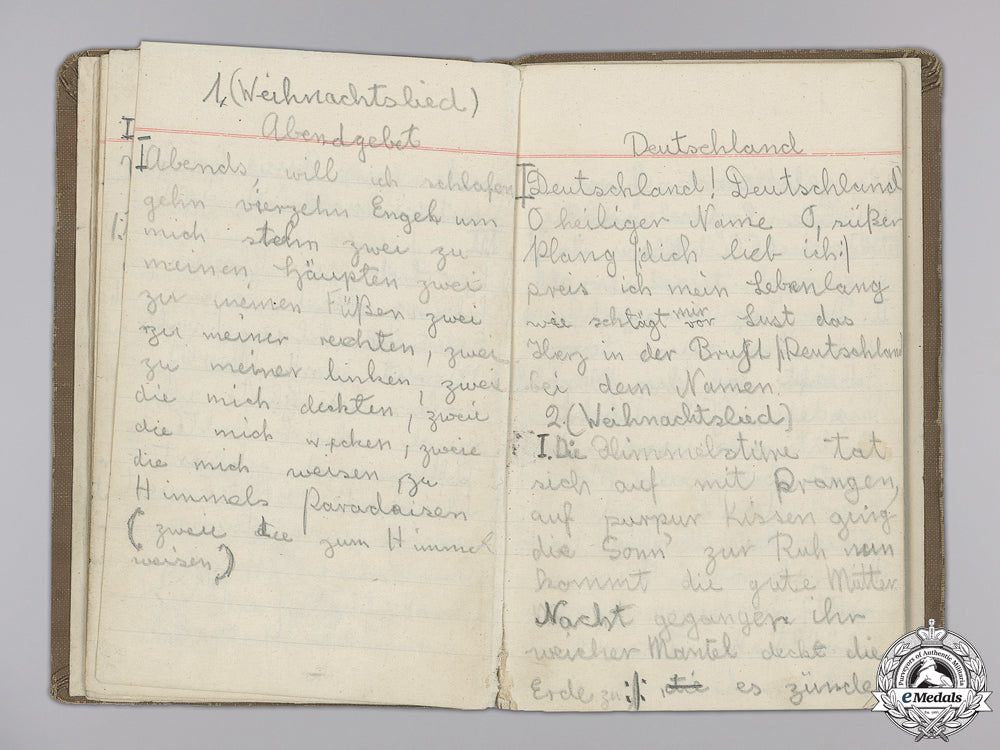 1. (Weihnachtslied)
Abendgebet
I
I Abends, will ich schlafen
gehn, vierzehn Engel um
mich stehn zwei zu
meinen Häupten zwei
zu meinen Füßen zwei
zu meiner rechten, zwei
zu meiner linken, zweie
die mich deckten, zweie
die mich wecken, zweie
die mich weisen, zu
Himmels Paradaisen
(zweie die zum Himmel
weisen)
Deutschland
I Deutschland! Deutschland
O heiliger Name O, süßer
Plang |dich lieb ich:|
preis ich mein Lebenlang
wie schlägt mir vor Lust das
Herz in der Brust |:Deutschland
bei dem Namen.
2. (Weihnachtslied)
I. Die Himmelstüre tat
sich auf mit Prangen,
auf purpur Kissen ging
die Sonn' zur Ruh nun
kommt die gute Mutter
Nacht gegangen ihr
weicher Mantel deckt die
Erde zu :|: die es zünde
Purveyors of Authentic Militaria
eMedals